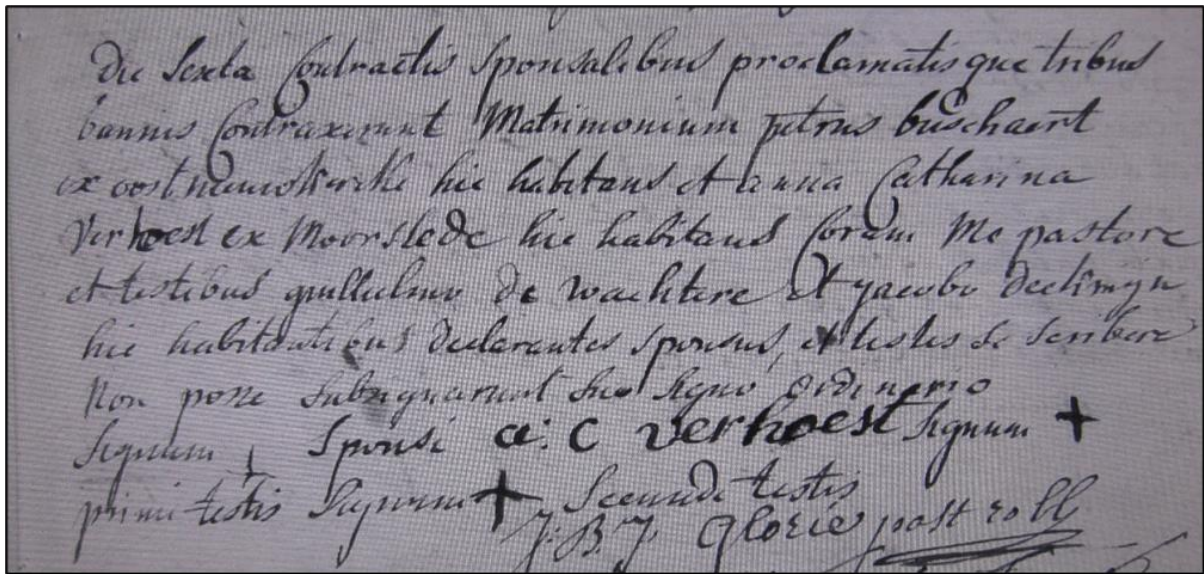 Die Sexta Contractis Sponsalibus proclamatisque tribus
bannis Contraxerunt Matrimonium petrus buschaert
ex oostnieuwkerke hic habitans et anna Catharina
Verhoest ex Moorslede hic habitans Coram Me pastore
et testibus guillielmo de wachtere et jacobo
hic habitantibus declarantes sponsus, et testes se scribere
Non posse subsignarunt suo signo ordinario
signum + Sponsi a: C verhoest signum +
primi testis signum + Secundi testis
J. B. J. Glorie past roll